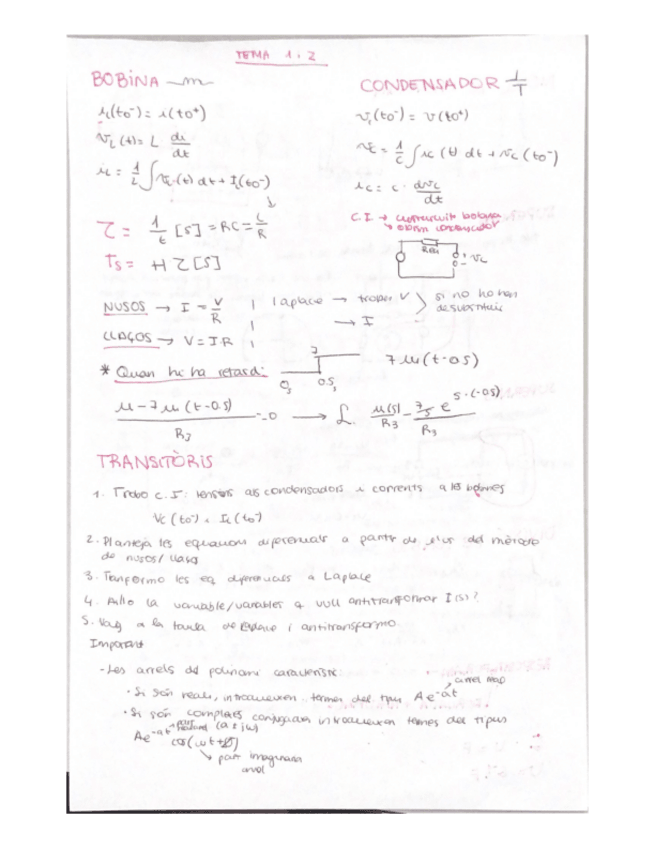 TEMA 1.2
BOBINA
CONDENSADOR
i(to⁻) = i(to⁺)
v(to⁻) = v(to⁺)
v_L(t) = L di/dt
v_C = 1/C ∫ i_C (t) dt + v_C (to⁻)
i_L = 1/L ∫ v_L (t) dt + I_L(to⁻)
i_C = C · dv_C/dt
τ = 1/t [s] = RC = L/R
C.I → curtcircuit bobina
obrim condensador
v_C
Ts = 4 τ [s]
NUSOS → I = V/R
Laplace → trobem V
si no ho hem
→ I
LLAÇOS → V = I·R
* Quan hi ha retard:
7
0
0.5
7 u(t-0.5)
u - 7 u(t-0.5) / R₃ = 0 → L. u(s)/R₃ - 7/s e^{s·(-0.5)} / R₃
TRANSITÒRIS
1. Trobo C.I: tensions als condensadors i corrents a les bobines
Vc (to⁻) i IL (to⁻)
2. Planteja les equacions diferencials a partir de del mètode
de nusos/llaços
3. Transformo les eq diferencials a Laplace
4. Aïllo la variable/variables q vull antitransformar I(s)?
5. Vaig a la taula de Laplace i antitransformo.
Important
- Les arrels del polinomi característic:
arrel real
· Si són reals, introdueixen termes del tipus Ae^{-at}
· Si són complexes conjugades introdueixen termes del tipus
(a ± jw)
Ae^{-at} cos(wt+Ø)
part imaginària
arrel